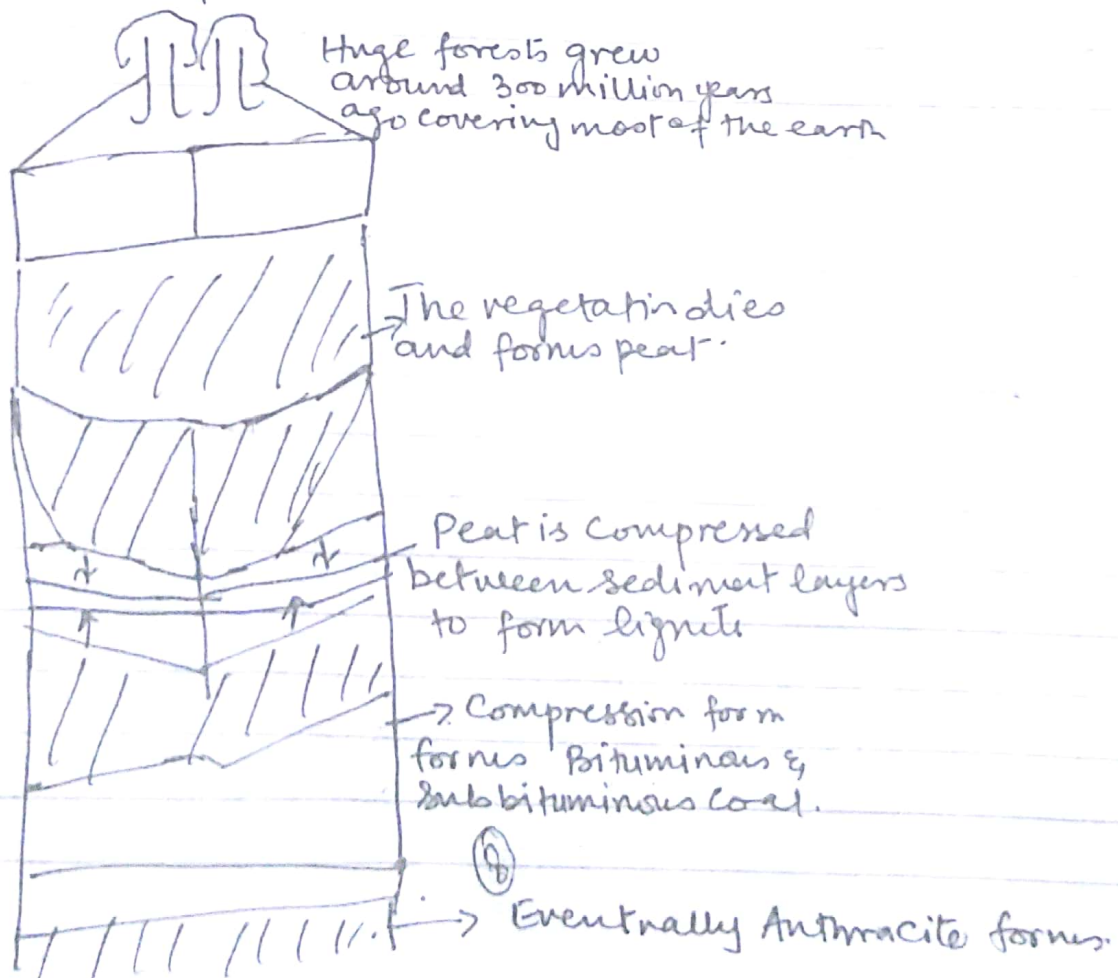 Huge forests grew
around 300 million years
ago covering most of the earth
The vegetatin dies
and forms peat.
Peat is Compressed
between sediment layers
to form lignite
Compression form
forms Bituminous &
Subbituminous Coal.
8
Eventually Anthracite forms.